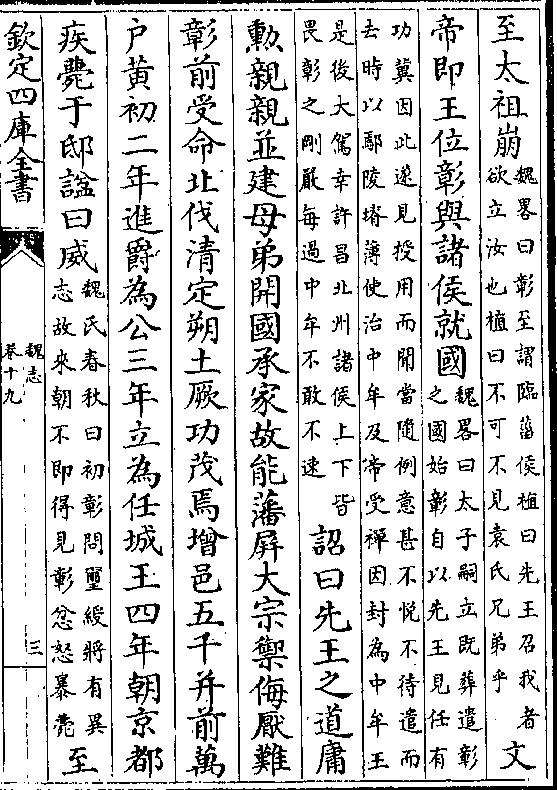 至太祖崩
魏畧曰彰至謂臨菑侯植曰先王召我者
欲立汝也植曰不可不見袁氏兄弟乎
文
帝即王位彰與諸侯就國
魏畧曰太子嗣立既葬遣彰
之國始彰自以先王見任有
功冀因此遂見授用而聞當隨例意甚不悦不待遣而
去時以鄢陵塉薄使治中牟及帝受禪因封為中牟王
是後大駕幸許昌北州諸侯上下皆
畏彰之剛嚴每過中牟不敢不速
詔曰先王之道庸
勳親親並建母弟開國承家故能藩屏大宗禦侮厭難
彰前受命北伐清定朔土厥功茂焉增邑五千并前萬
户黃初二年進爵為公三年立為任城王四年朝京都
疾薨于邸諡曰威
魏氏春秋曰初彰問璽綬將有異
志故來朝不即得見彰忿怒暴薨
至
欽定四庫全書
魏志
卷十九
三